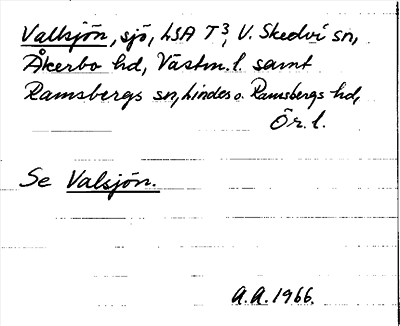 Vallsjön, sjö, LSA T3, V. Skedvi sn,
Åkerbo hd, Västm. l. samt
Ramsbergs sn, Lindes o. Ramsbergs hd,
Ör. l.
Se Valsjön.
A.A. 1966.